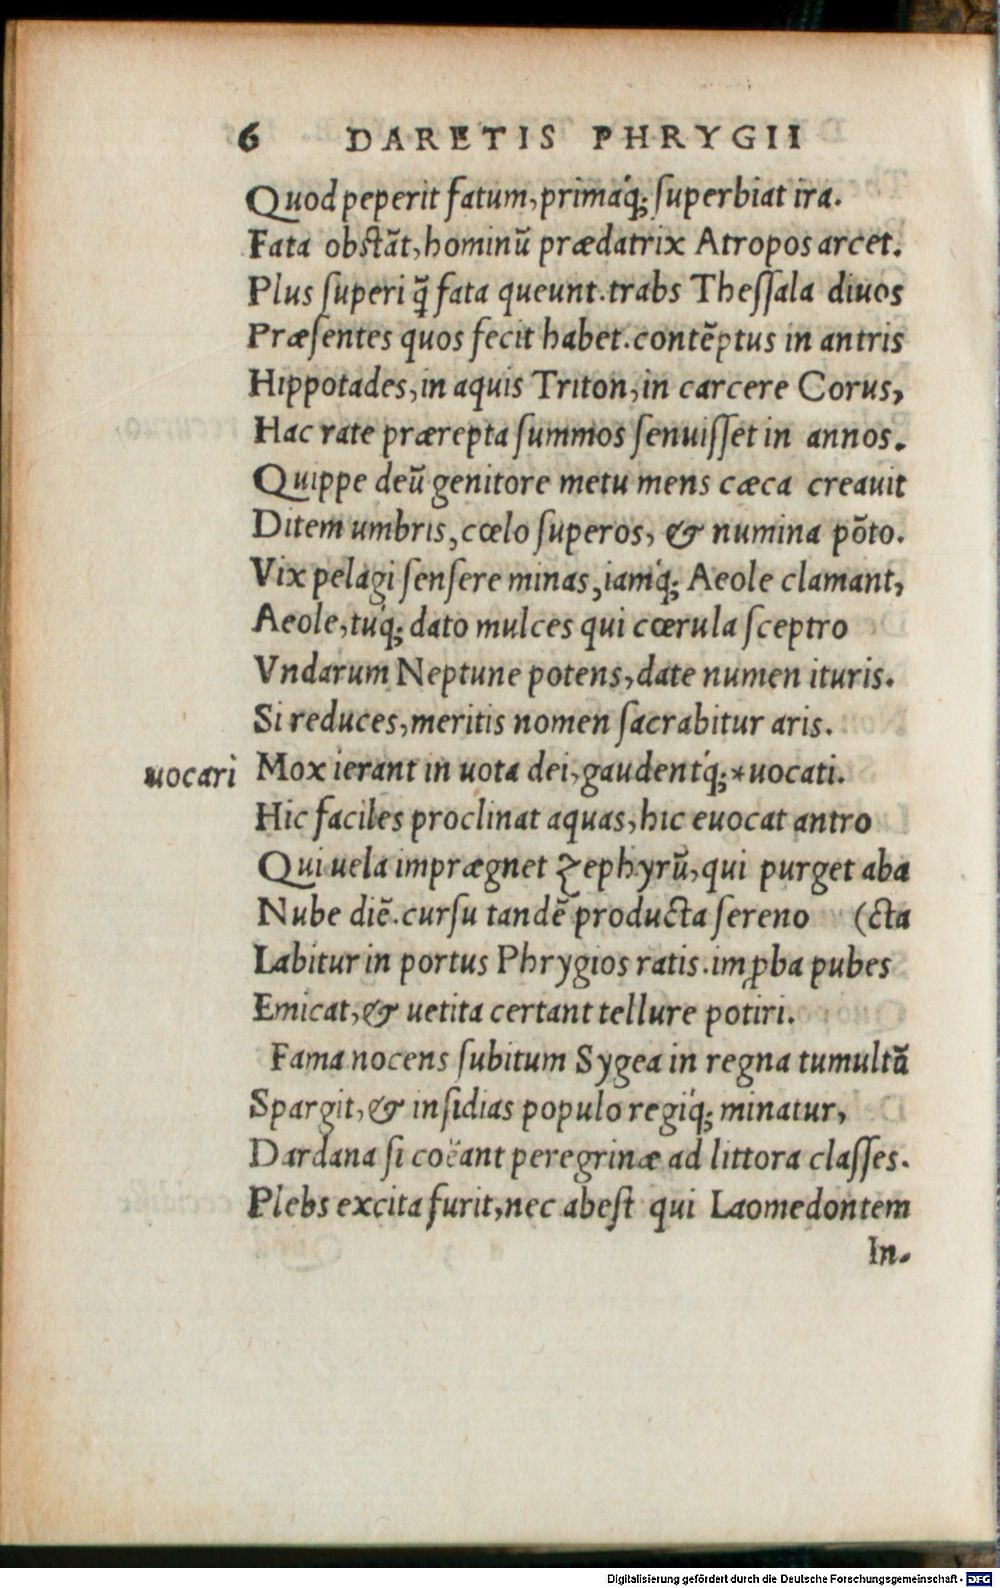 6 DARETIS PHRYGII
Quod peperit fatum, primaq́; ſuperbiat ira.
Fata obſtãt, hominũ prædatrix Atropos arcet.
Plus ſuperi q̃ fata queunt. trabs Theſſala diuos
Præſentes quos fecit habet. contẽptus in antris
Hippotades, in aquis Triton, in carcere Corus,
Hac rate prærepta ſummos ſenuiſſet in annos.
Quippe deũ genitore metu mens cæca creauit
Ditem umbris, cœlo ſuperos, & numina põto.
Vix pelagi ſenſere minas, iamq́; Aeole clamant,
Aeole, tuq́; dato mulces qui cœrula ſceptro
Vndarum Neptune potens, date numen ituris.
Si reduces, meritis nomen ſacrabitur aris.
uocari Mox ierant in uota dei, gaudentq́; *uocati.
Hic faciles proclinat aquas, hic euocat antro
Qui uela imprægnet Zephyrũ, qui purget aba
Nube diẽ. curſu tandẽ producta ſereno (cta
Labitur in portus Phrygios ratis. imꝓba pubes
Emicat, & uetita certant tellure potiri.
Fama nocens ſubitum Sygea in regna tumultũ
Spargit, & inſidias populo regiq́; minatur,
Dardana ſi coëant peregrinæ ad littora claſſes.
Plebs excita furit, nec abeſt qui Laomedontem
In.
Digitalisierung gefördert durch die Deutsche Forschungsgemeinschaft - DFG